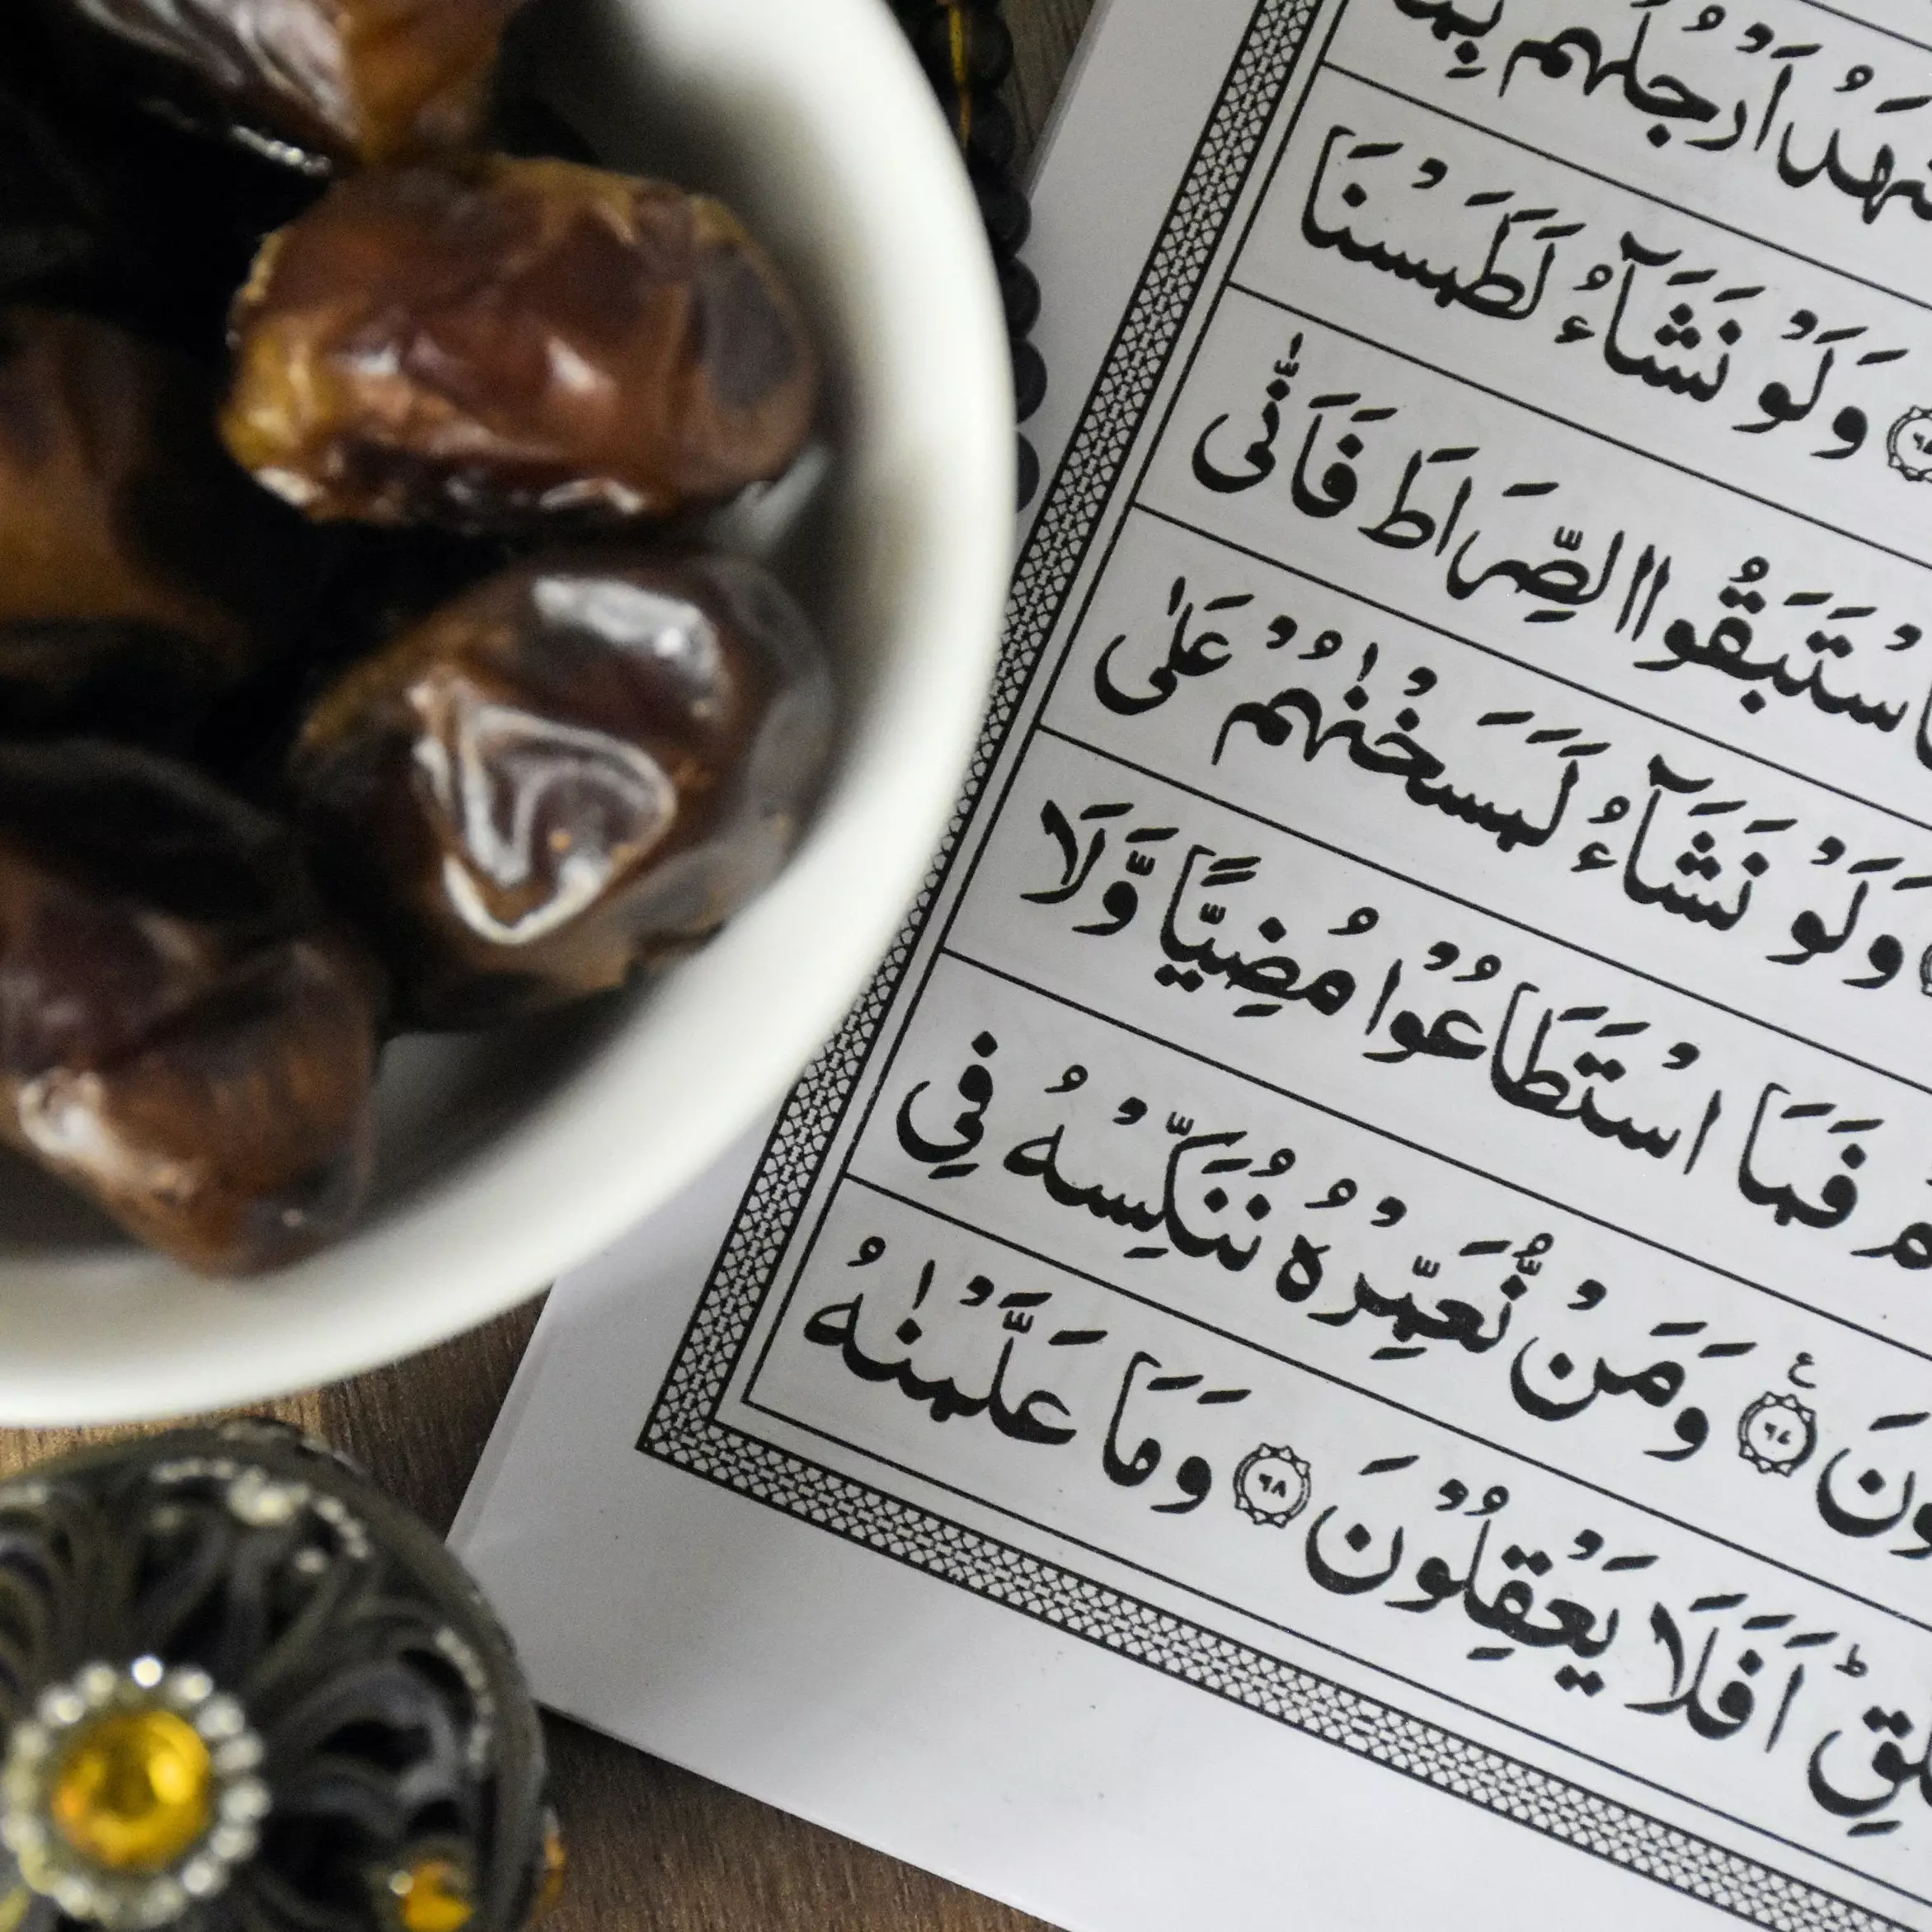 اَرْجُلُهُمْ
وَلَوْ نَشَآءُ لَطَمَسْنَا
فَاسْتَبَقُوا الصِّرَاطَ فَاَنّٰى
وَلَوْ نَشَآءُ لَمَسَخْنٰهُمْ عَلٰى
فَمَا اسْتَطَاعُوْا مُضِيًّا وَّلَا
۝٦٧ وَمَنْ نُّعَمِّرْهُ نُنَكِّسْهُ فِي
اَفَلَا يَعْقِلُوْنَ ۝٦٨ وَمَا عَلَّمْنٰهُ